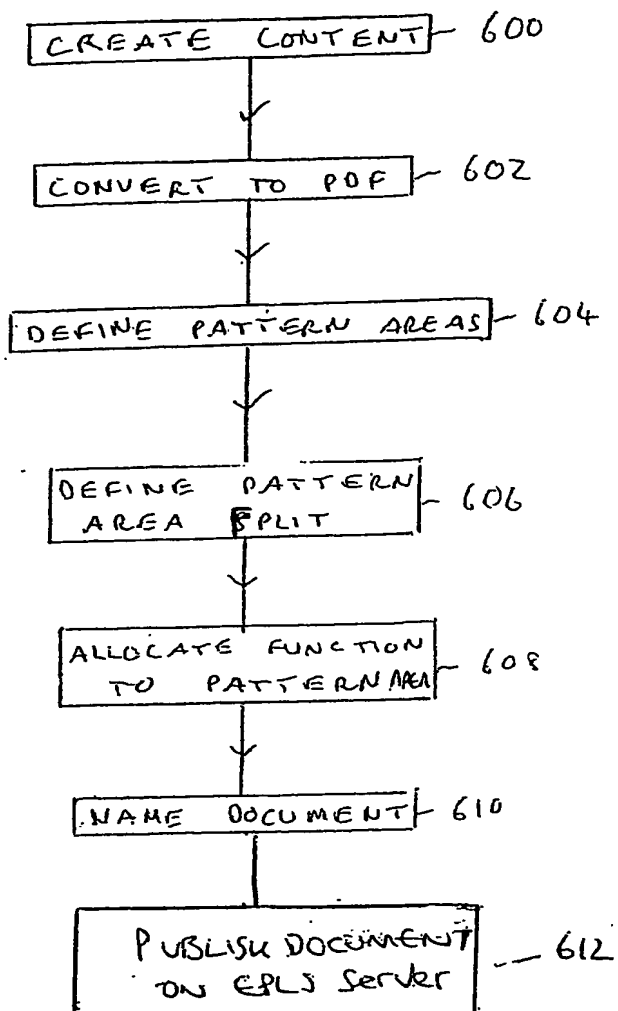 CREATE CONTENT 600
CONVERT TO PDF 602
DEFINE PATTERN AREAS 604
DEFINE PATTERN
AREA SPLIT 606
ALLOCATE FUNCTION
TO PATTERN AREA 608
NAME DOCUMENT 610
PUBLISH DOCUMENT
ON EPLS Server 612